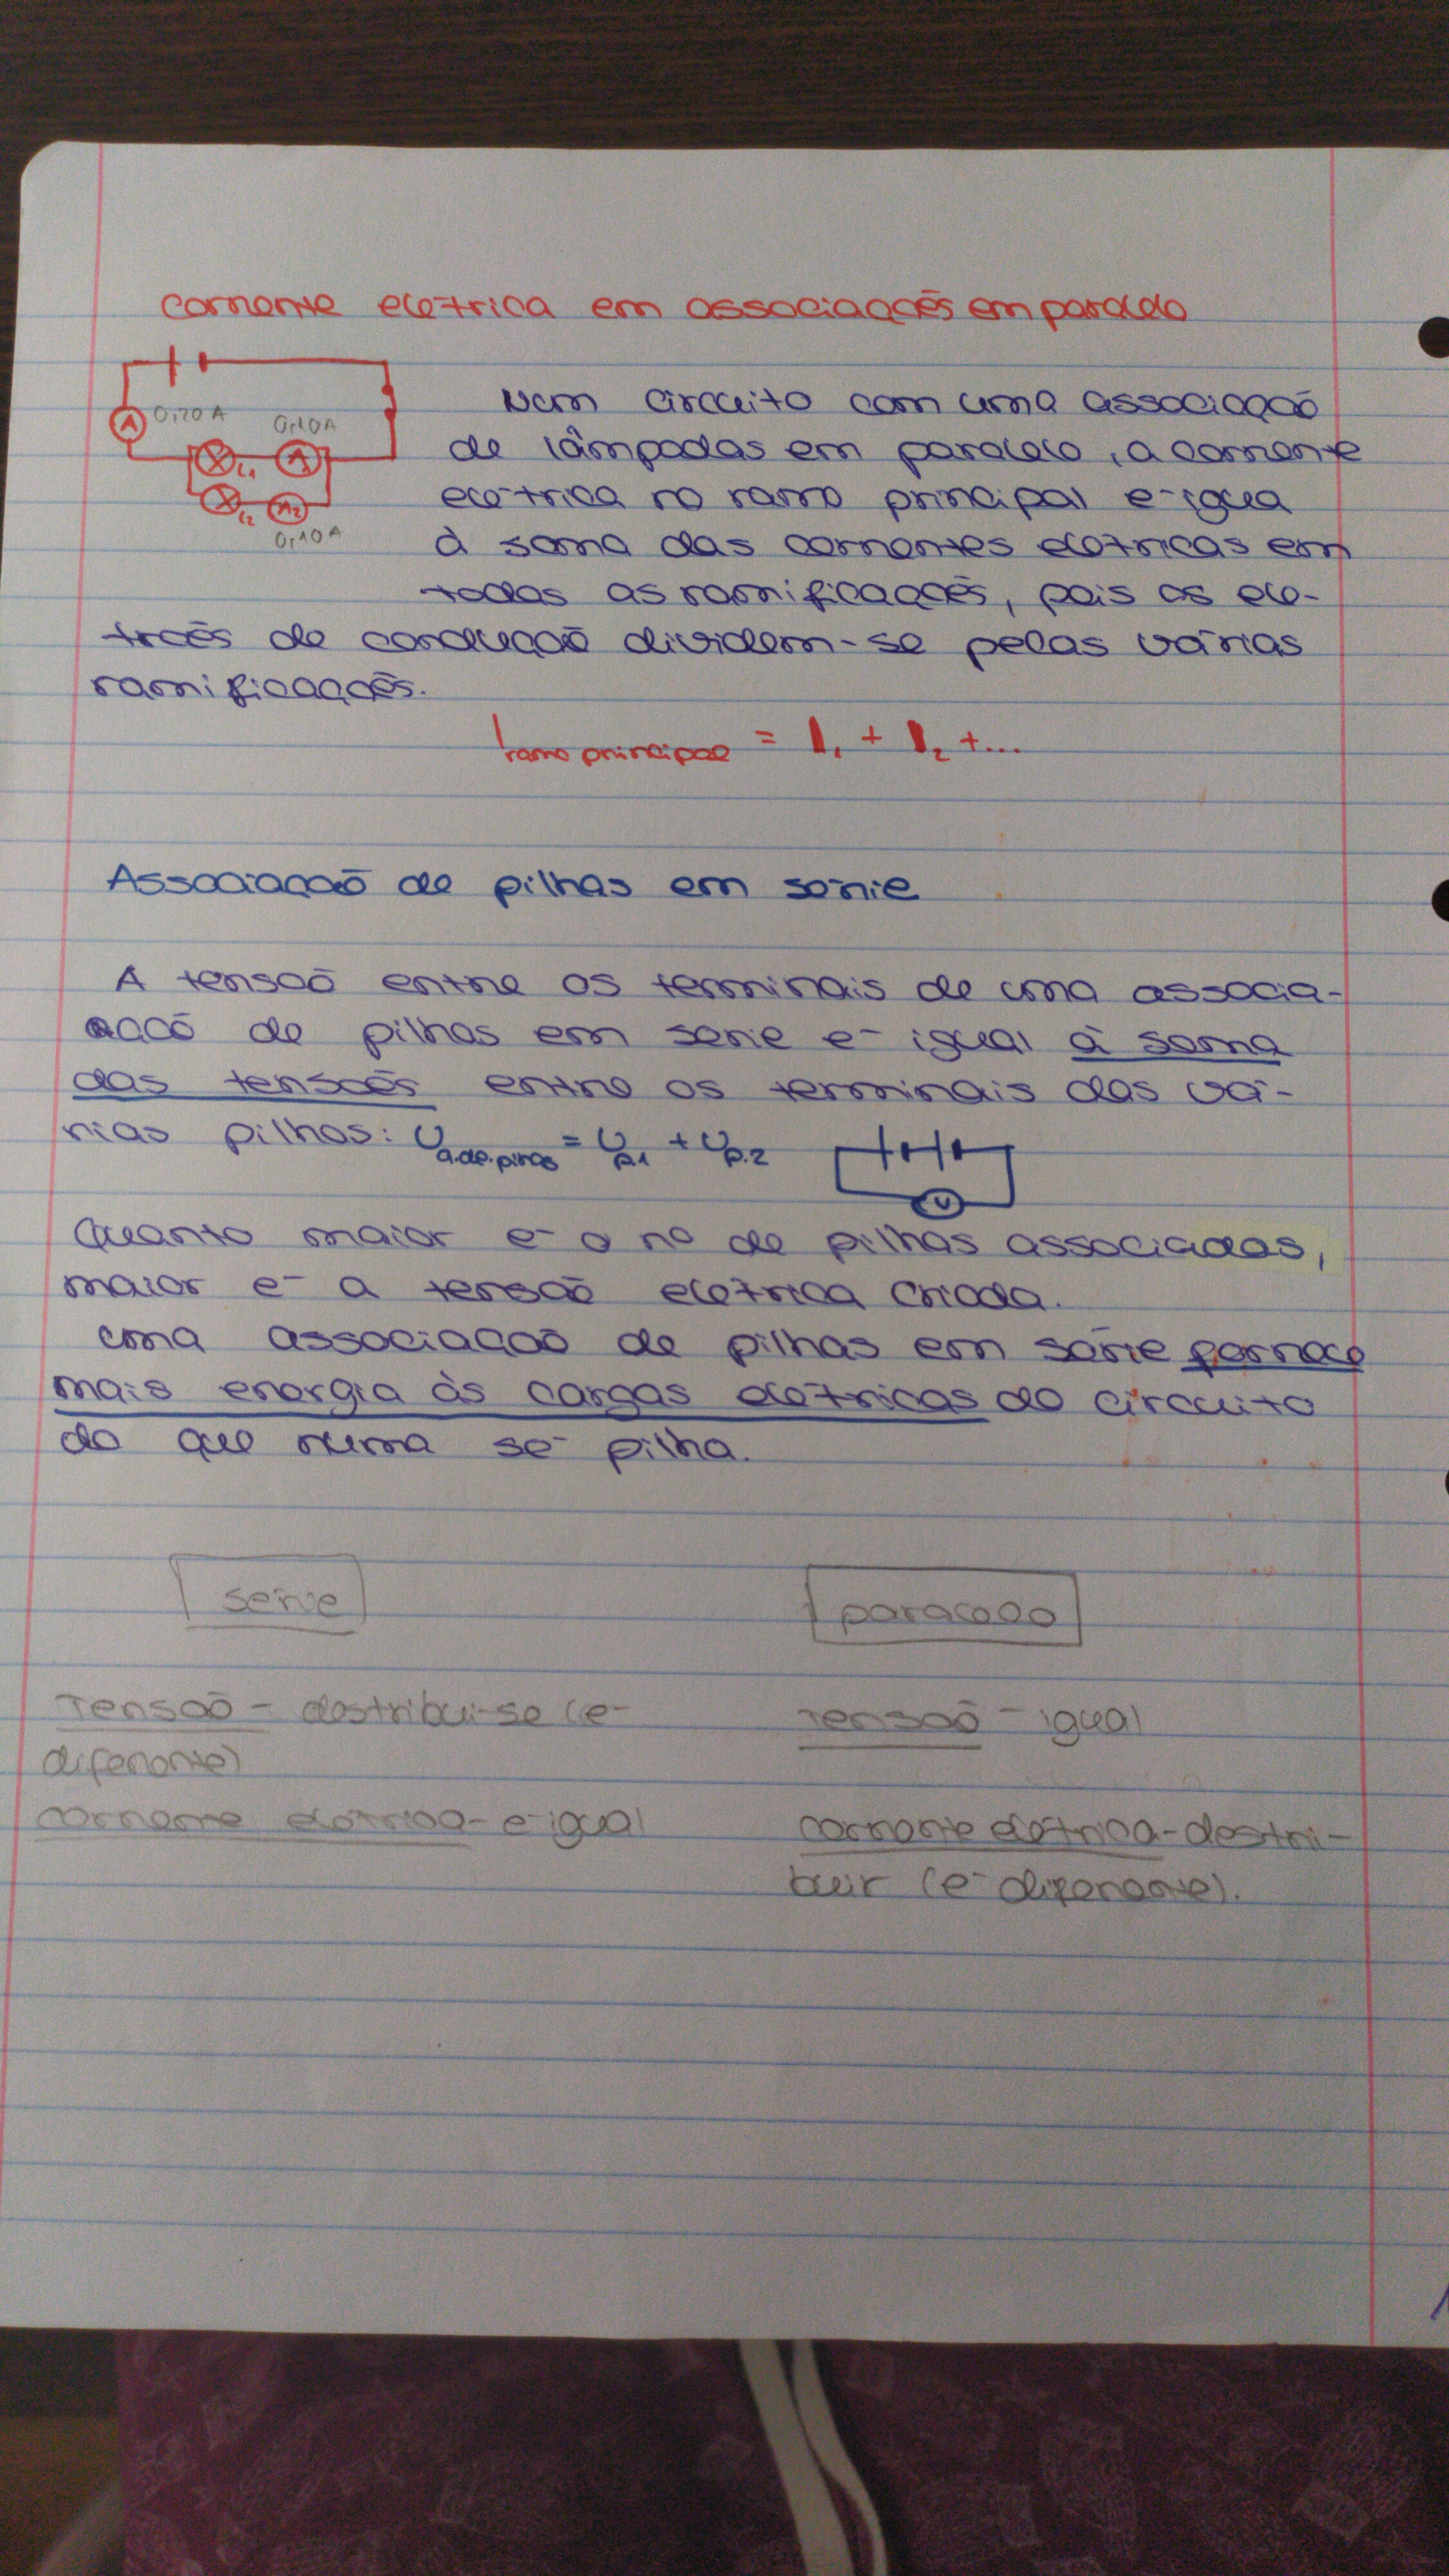 Corrente eletrica em associações em paralelo
0,20 A
0,10 A
A
L1
A
L2
A2
0,10 A
Num circuito com uma associação
de lâmpadas em paralelo, a corrente
eletrica no ramo principal é igua
à soma das correntes eletricas em
todas as ramificações, pois os ele-
trões de condução dividem-se pelas várias
ramificações.
I ramo principal = I1 + I2 +...
Associação de pilhas em série
A tensão entre os terminais de uma associa-
ação de pilhas em serie é igual à soma
das tensões entre os terminais das vá-
rias pilhas: U a.de.pilhas = U p.1 + U p.2
V
Quanto maior é o nº de pilhas associadas,
maior é a tensão eletrica criada.
Uma associação de pilhas em série fornece
mais energia às cargas elétricas do circuito
do que numa só pilha.
serie
paralelo
Tensão - destribui-se (é
diferente)
Tensão - igual
corrente elétrica - é igual
corrente elétrica - destri-
buir (é diferente).